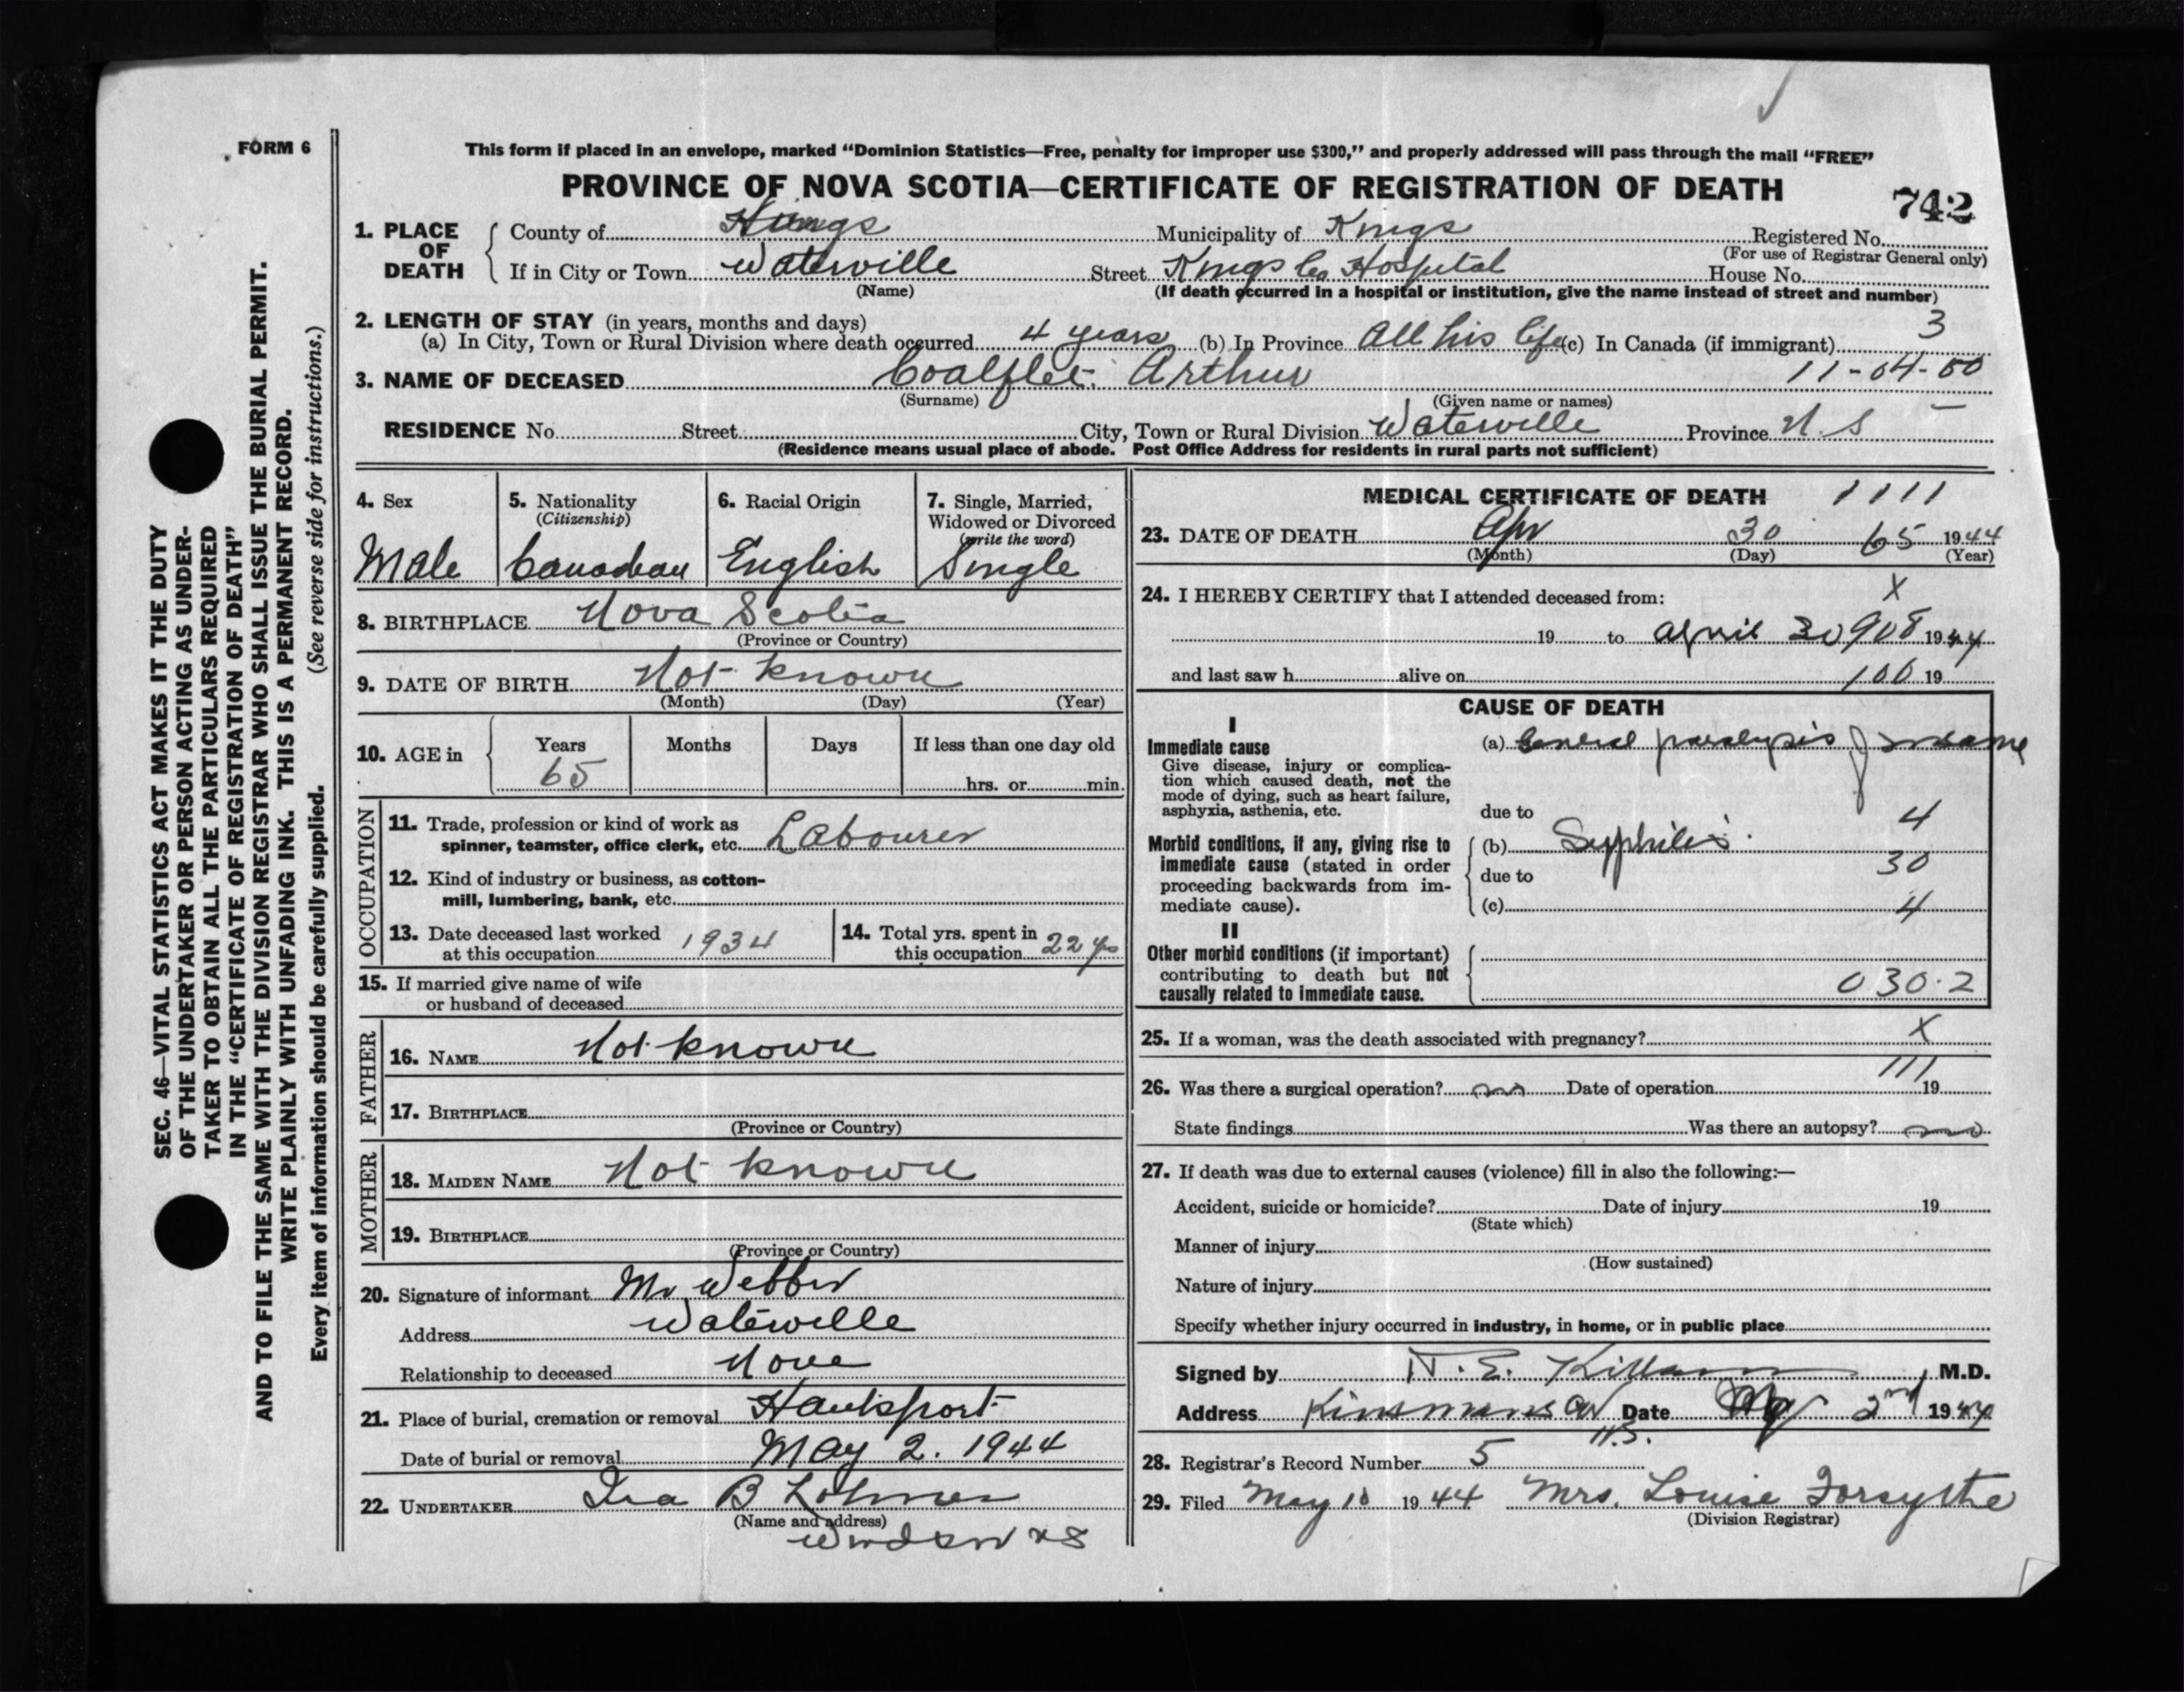 FORM 6
This form if placed in an envelope, marked “Dominion Statistics—Free, penalty for improper use $300,” and properly addressed will pass through the mail “FREE”
PROVINCE OF NOVA SCOTIA—CERTIFICATE OF REGISTRATION OF DEATH
742
1. PLACE OF DEATH
County of Kings Municipality of Kings Registered No.
(For use of Registrar General only)
If in City or Town Waterville Street Kings Co Hospital House No.
(Name) (If death occurred in a hospital or institution, give the name instead of street and number)
2. LENGTH OF STAY (in years, months and days) 3
(a) In City, Town or Rural Division where death occurred 4 years (b) In Province All his life (c) In Canada (if immigrant)
3. NAME OF DECEASED Coalflet Arthur 11-04-50
(Surname) (Given name or names)
RESIDENCE No. Street City, Town or Rural Division Waterville Province N.S
(Residence means usual place of abode. Post Office Address for residents in rural parts not sufficient)
SEC. 46—VITAL STATISTICS ACT MAKES IT THE DUTY
OF THE UNDERTAKER OR PERSON ACTING AS UNDER-
TAKER TO OBTAIN ALL THE PARTICULARS REQUIRED
IN THE “CERTIFICATE OF REGISTRATION OF DEATH”
AND TO FILE THE SAME WITH THE DIVISION REGISTRAR WHO SHALL ISSUE THE BURIAL PERMIT.
WRITE PLAINLY WITH UNFADING INK. THIS IS A PERMANENT RECORD.
Every item of information should be carefully supplied. (See reverse side for instructions.)
4. Sex
Male
5. Nationality
(Citizenship)
Canadian
6. Racial Origin
English
7. Single, Married,
Widowed or Divorced
(write the word)
Single
8. BIRTHPLACE Nova Scotia
(Province or Country)
9. DATE OF BIRTH Not known
(Month) (Day) (Year)
10. AGE in Years Months Days If less than one day old
65 hrs. or min.
OCCUPATION
11. Trade, profession or kind of work as
spinner, teamster, office clerk, etc. Labourer
12. Kind of industry or business, as cotton-
mill, lumbering, bank, etc.
13. Date deceased last worked
at this occupation 1934
14. Total yrs. spent in
this occupation 22 yrs
15. If married give name of wife
or husband of deceased
FATHER
16. NAME Not known
17. BIRTHPLACE
(Province or Country)
MOTHER
18. MAIDEN NAME Not known
19. BIRTHPLACE
(Province or Country)
20. Signature of informant Mr Webber
Address Waterville
Relationship to deceased None
21. Place of burial, cremation or removal Hantsport
Date of burial or removal May 2. 1944
22. UNDERTAKER Ira B Lohnes
(Name and address)
Windsor NS
MEDICAL CERTIFICATE OF DEATH 1111
23. DATE OF DEATH Apr 30 65 1944
(Month) (Day) (Year)
24. I HEREBY CERTIFY that I attended deceased from: X
19 to April 30 908 1944
and last saw h alive on 100 19
CAUSE OF DEATH
I
Immediate cause
Give disease, injury or complica-
tion which caused death, not the
mode of dying, such as heart failure,
asphyxia, asthenia, etc.
(a) General paralysis of insane
due to 4
Morbid conditions, if any, giving rise to
immediate cause (stated in order
proceeding backwards from im-
mediate cause).
(b) Syphilis
due to 30
(c) 4
II
Other morbid conditions (if important)
contributing to death but not
causally related to immediate cause.
030.2
25. If a woman, was the death associated with pregnancy? X
26. Was there a surgical operation? no Date of operation 111 19
State findings Was there an autopsy? no
27. If death was due to external causes (violence) fill in also the following:—
Accident, suicide or homicide? Date of injury 19
(State which)
Manner of injury
(How sustained)
Nature of injury
Specify whether injury occurred in industry, in home, or in public place
Signed by N. E. Killam M.D.
Address Date May 2nd 1944
N.S.
28. Registrar's Record Number 5
29. Filed May 10 1944 Mrs. Louise Forsythe
(Division Registrar)